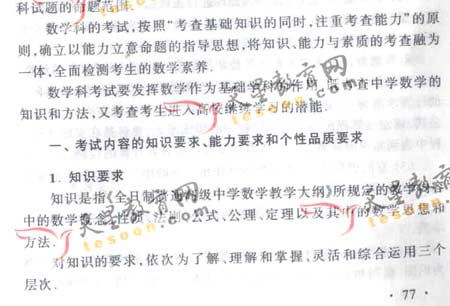 科试题的命题范围.
数学科的考试,按照“考查基础知识的同时,注重考查能力”的原
则,确立以能力立意命题的指导思想,将知识、能力与素质的考查融为
一体,全面检测考生的数学素养.
数学科考试要发挥数学作为基础学科的作用,既考查中学数学的
知识和方法,又考查考生进入高校继续学习的潜能.
一、考试内容的知识要求、能力要求和个性品质要求
1. 知识要求
知识是指《全日制普通高级中学数学教学大纲》所规定的教学内容
中的数学概念、性质、法则、公式、公理、定理以及其中的数学思想和
方法.
对知识的要求,依次为了解、理解和掌握、灵活和综合运用三个
层次.
· 77 ·
天星教育网
tesoon.com
天星教育网
tesoon.com
天星教育网
tesoon.com